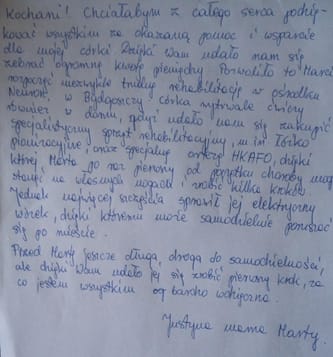 Kochani! Chciałabym z całego serca podzię-
kować wszystkim za okazaną pomoc i wsparcie
dla mojej córki. Dzięki Wam udało nam się
zebrać ogromną kwotę pieniędzy. Pozwoliło to Marcie
rozpocząć niezwykle trudną rehabilitację w ośrodku
Neuron w Bydgoszczy. córka wytrwale ćwiczy
również w domu, gdyż udało nam się zakupić
specjalistyczny sprzęt rehabilitacyjny, m.in łóżko
pionizacyjne, oraz specjalne ortezy HKAFO, dzięki
której Marta po raz pierwszy od początku choroby mogła
stanąć na własnych nogach i zrobić kilka kroków.
Jednak najwięcej szczęścia sprawił jej elektryczny
wózek, dzięki któremu może samodzielnie poruszać
się po mieście.
Przed Martą jeszcze długa droga do samodzielności,
ale dzięki Wam udało jej się zrobić pierwszy krok, za
co jestem wszystkim bardzo wdzięczna.
Justyna mama Marty.